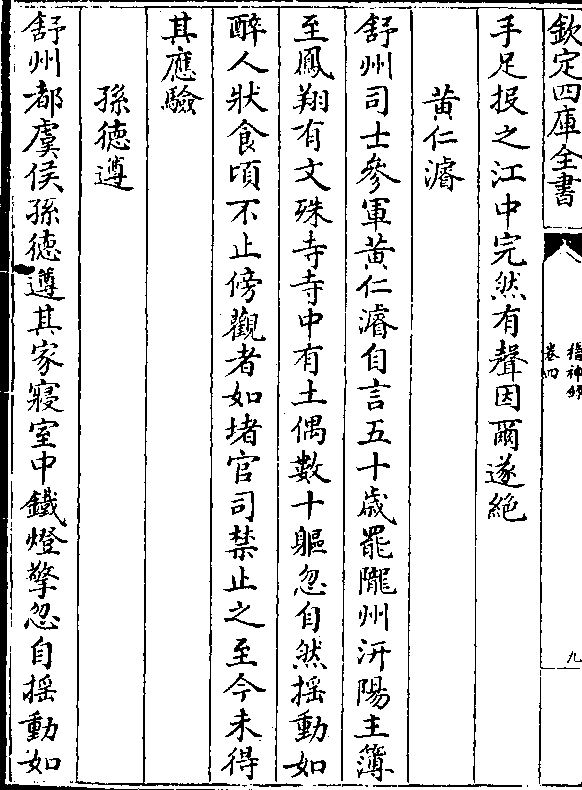 欽定四庫全書
稽神錄
卷四
九
手足投之江中完然有聲因爾遂絕
黃仁濬
舒州司士參軍黃仁濬自言五十歲罷隴州汧陽主簿
至鳳翔有文殊寺寺中有土偶數十軀忽自然揺動如
醉人狀食頃不止傍觀者如堵官司禁止之至今未得
其應驗
孫德遵
舒州都虞侯孫德遵其家寢室中鐵燈擎忽自揺動如